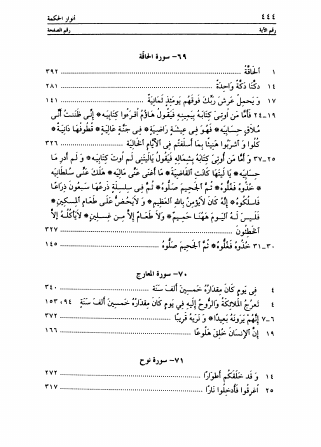 ٤٤٤ أنوار الحكمة
رقم الآية رقم الصفحة
٦٩- سورة الحاقّة
١ الْحَاقَّةُ ٣٩٢
١٤ دَكَّتَا دَكَّةً وَاحِدَةً ٢٨١
١٧ وَيَحْمِلُ عَرْشَ رَبِّكَ فَوْقَهُمْ يَوْمَئِذٍ ثَمَانِيَةٌ ١٤١
١٩-٢٤ فَأَمَّا مَنْ أُوتِيَ كِتَابَهُ بِيَمِينِهِ فَيَقُولُ هَاؤُمُ اقْرَءُوا كِتَابِيَهْ * إِنِّي ظَنَنتُ أَنِّي
مُلَاقٍ حِسَابِيَهْ * فَهُوَ فِي عِيشَةٍ رَاضِيَةٍ * فِي جَنَّةٍ عَالِيَةٍ * قُطُوفُهَا دَانِيَةٌ *
كُلُوا وَ اشْرَبُوا هَنِيئًا بِمَا أَسْلَفْتُمْ فِي الأَيَّامِ الْخَالِيَةِ ٣٢٦
٢٥-٣٧ وَ أَمَّا مَنْ أُوتِيَ كِتَابَهُ بِشِمَالِهِ فَيَقُولُ يَالَيْتَنِي لَمْ أُوتَ كِتَابِيَهْ * وَ لَمْ أَدْرِ مَا
حِسَابِيَهْ * يَا لَيْتَهَا كَانَتِ الْقَاضِيَةَ * مَا أَغْنَى عَنِّي مَالِيَهْ * هَلَكَ عَنِّي سُلْطَانِيَهْ
* خُذُوهُ فَغُلُّوهُ * ثُمَّ الْجَحِيمَ صَلُّوهُ * ثُمَّ فِي سِلْسِلَةٍ ذَرْعُهَا سَبْعُونَ ذِرَاعًا
فَاسْلُكُوهُ * إِنَّهُ كَانَ لَايُؤْمِنُ بِاللهِ الْعَظِيمِ * وَ لَايَحُضُّ عَلَى طَعَامِ الْمِسْكِينِ *
فَلَيْسَ لَهُ الْيَوْمَ هَهُنَا حَمِيمٌ * وَلَا طَعَامٌ إِلَّا مِنْ غِسْلِينٍ * لَايَأْكُلُهُ إِلَّا
الْخَاطِئُونَ ٣٢٧
٣٠-٣١ خُذُوهُ فَغُلُّوهُ * ثُمَّ الْجَحِيمَ صَلُّوهُ ١٤٥
٧٠- سورة المعارج
٤ فِي يَوْمٍ كَانَ مِقْدَارُهُ خَمْسِينَ أَلْفَ سَنَةٍ ٣٤٠
٤ تَعْرُجُ الْمَلَائِكَةُ وَالرُّوحُ إِلَيْهِ فِي يَوْمٍ كَانَ مِقْدَارُهُ خَمْسِينَ أَلْفَ سَنَةٍ ٩٤، ١٥٣
٦-٧ إِنَّهُمْ يَرَوْنَهُ بَعِيدًا * وَ نَرَيهُ قَرِيبًا ٣٧٢
١٩ إِنَّ الْإِنسَانَ خُلِقَ هَلُوعًا ١٦٦
٧١- سورة نوح
١٤ وَ قَدْ خَلَقَكُم أَطْوَارًا ٢٧٢
٢٥ اُغْرِقُوا فَأُدْخِلُوا نَارًا ٣١٧